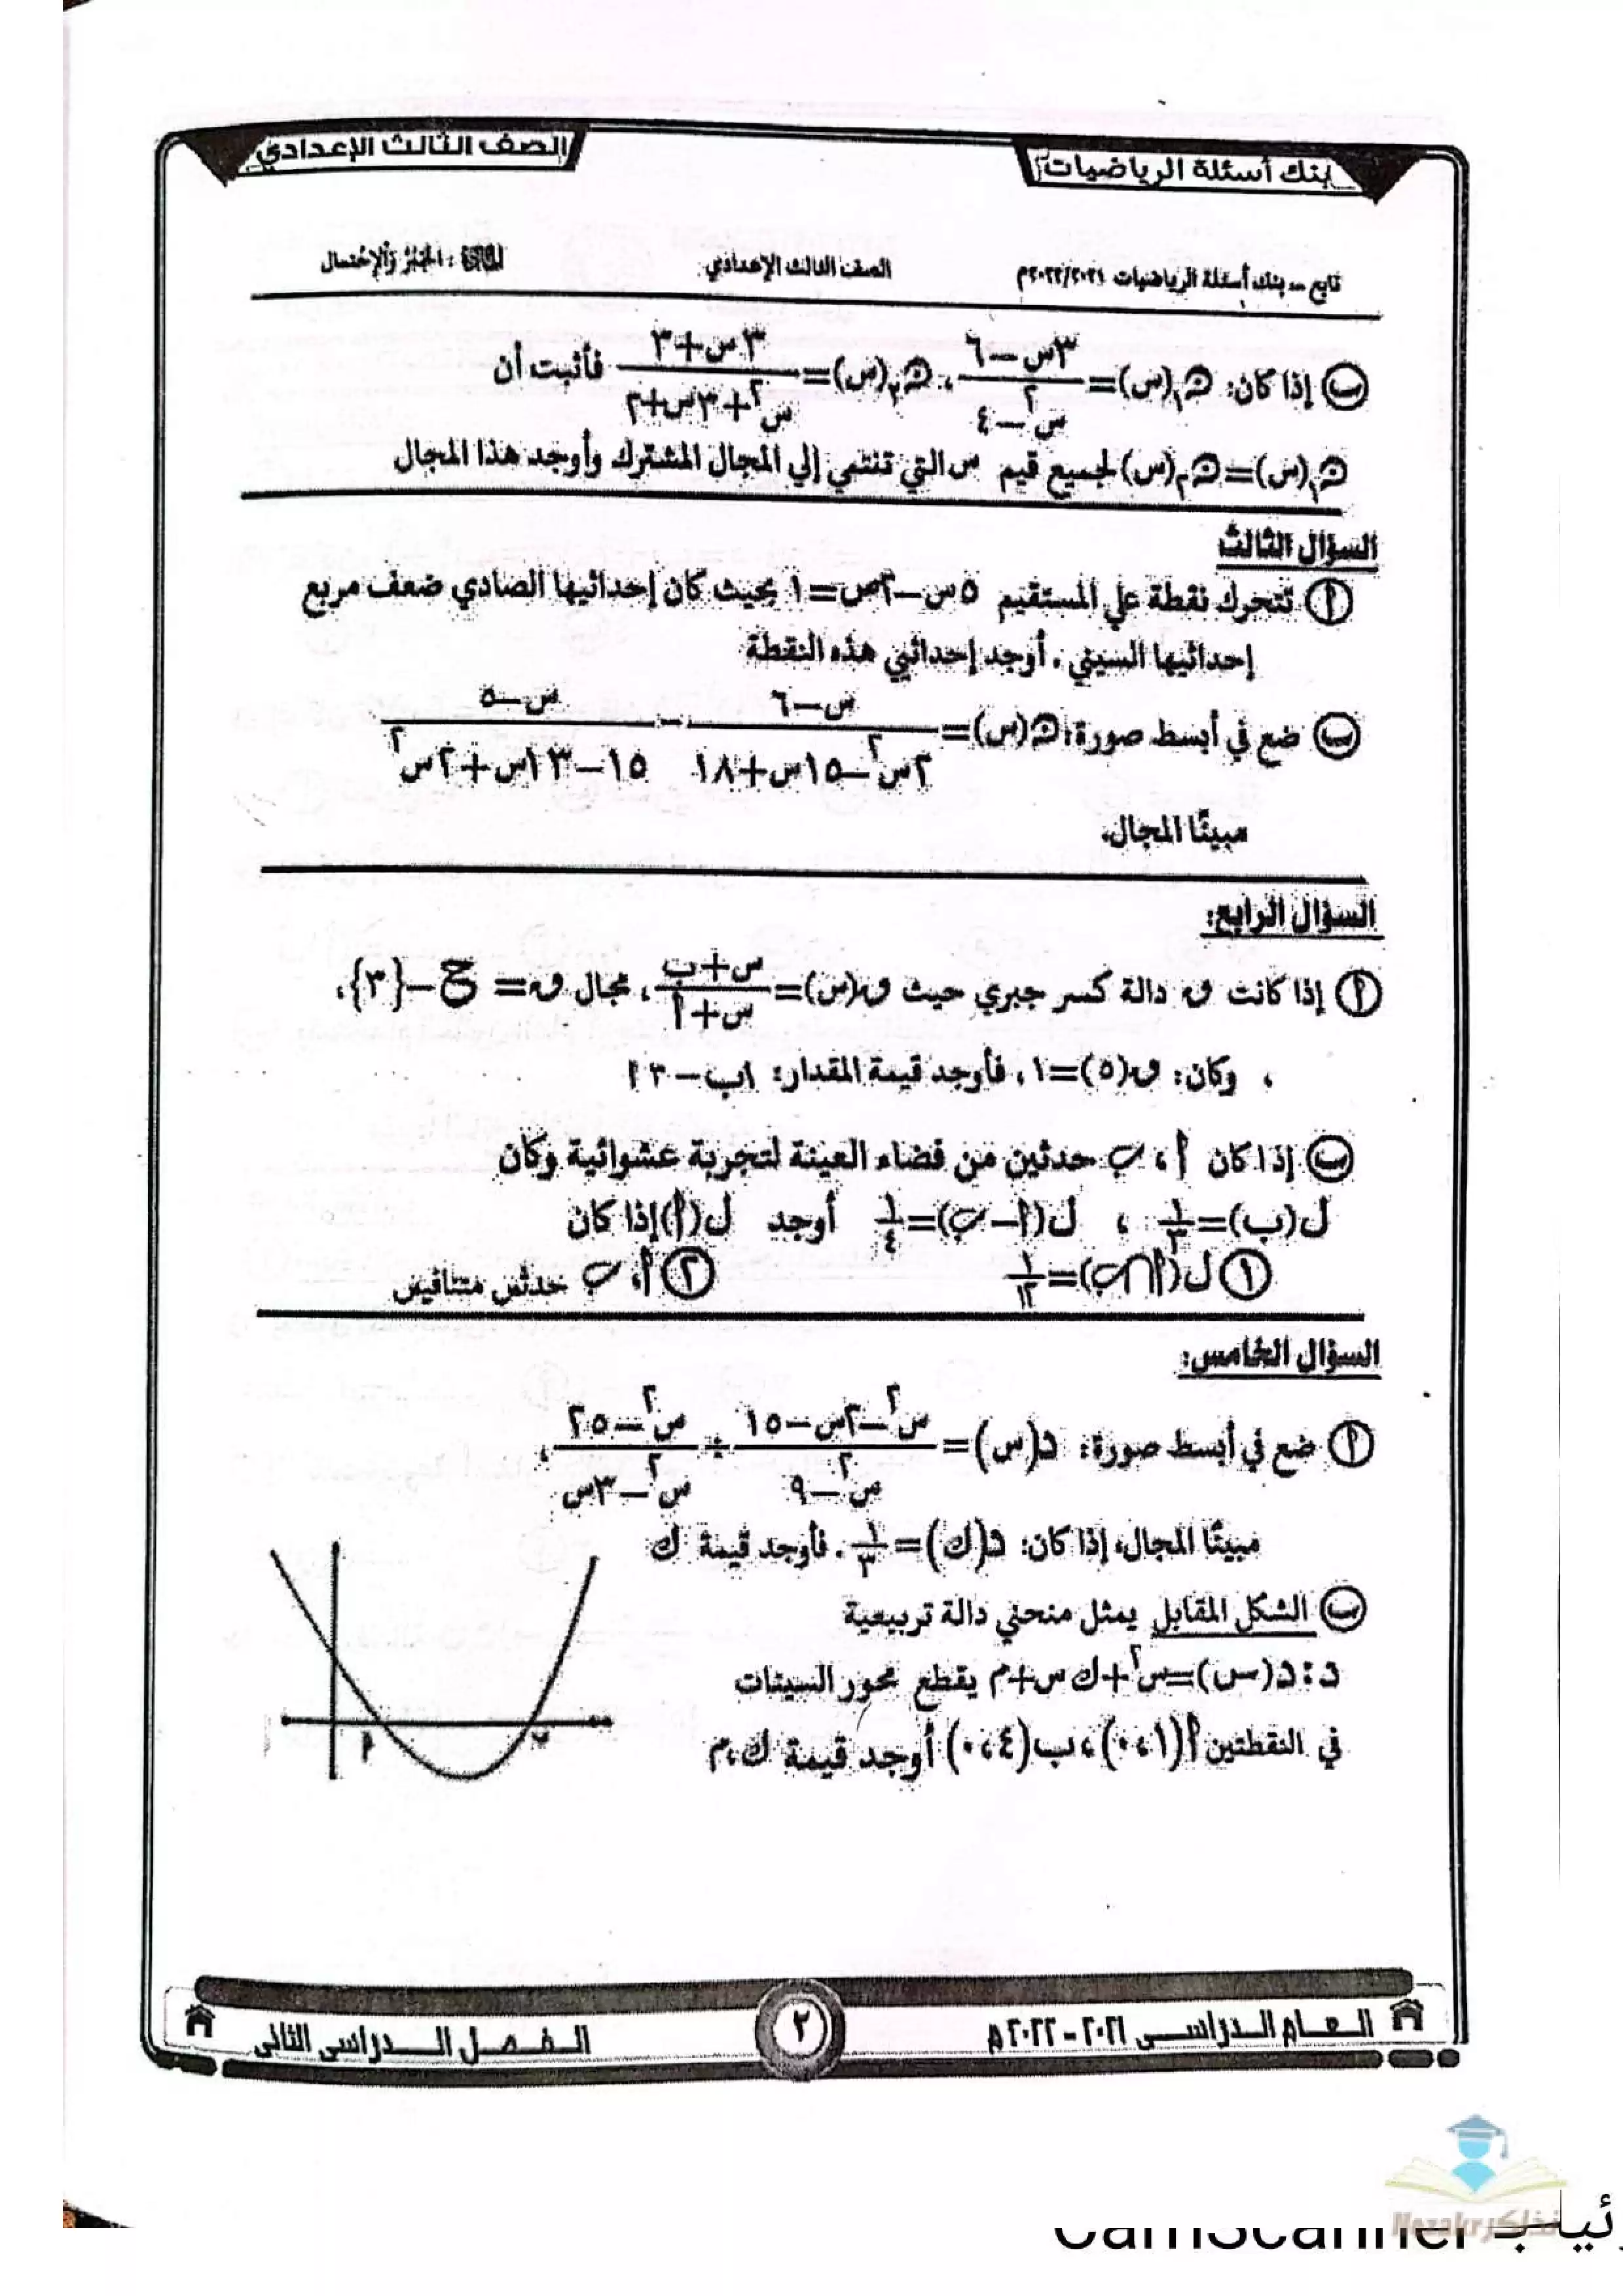 بنك أسئلة الرياضيات
الصف الثالث الإعدادي
تابع – بنك أسئلة الرياضيات ٢٠٢١/٢٠٢٢م الصف الثالث الإعدادي المادة: الجبر والإحتمال
ب إذا كان: ن١(س)= (٣س−٦)/(س٢−٤) ، ن٢(س)= (٣س+٣)/(س٢+٣س+٢) فأثبت أن
ن١(س)=ن٢(س) لجميع قيم س التي تنتمي إلي المجال المشترك وأوجد هذا المجال
السؤال الثالث
أ تتحرك نقطة علي المستقيم ٥س−٢ص=١ بحيث كان إحداثيها الصادي ضعف مربع
إحداثيها السيني . أوجد إحداثيي هذه النقطة
ب ضع في أبسط صورة: ن(س)= (س−٦)/(٢س٢−١٥س+١٨) − (س−٥)/(١٥−١٣س+٢س٢)
مبينًا المجال.
السؤال الرابع:
أ إذا كانت ق دالة كسر جبري حيث ق(س)= (س+ب)/(س+أ) ، مجال ق = ح−{٣}،
، وكان: ق(٥)=١ ، فأوجد قيمة المقدار:
ب إذا كان أ، ب حدثين من فضاء العينة لتجربة عشوائية وكان
ل(ب)=١/٣ ، ل(أ−ب)=١/٤ أوجد ل(أ) إذا كان
١ ل(أ∩ب)=١/١٢ ٢ أ، ب حدثين متنافيين
السؤال الخامس:
أ ضع في أبسط صورة: د(س)= (س٢−٢س−١٥)/(س٢−٩) ÷ (س٢−٢٥)/(س٢−٣س) ،
مبينًا المجال، إذا كان: د(ك)=١/٣ . فأوجد قيمة ك
ب الشكل المقابل يمثل منحني دالة تربيعية
د: د(س)=س٢+ك س+م يقطع محور السينات
في النقطتين أ(١،٠)، ب(٤،٠) أوجد قيمة ك،م
أ ب
العام الدراسى ٢٠٢١ - ٢٠٢٢م
٢
الفصل الدراسى الثانى
نذاكر Nezakr
CamScanner